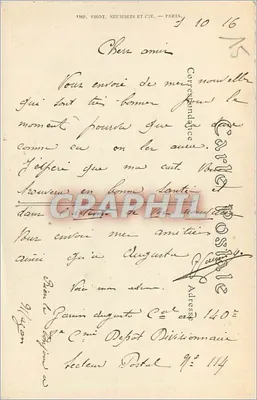 IMP. PHOT. NEURDEIN ET CIE. — PARIS.
3 10 16
15
Cher ami
Vous envoie de mes nouvelles
qui sont très bonnes pour le
moment pourvu que ça dure
comme ça on les aura.
J'espère que ma carte vous
trouvera en bonne santé
dans
Vous envoie mes amitiés
ainsi qu'à Auguste
Voici mon adresse
Jamin auguste Cal au 140e
Cie Dépôt Divisionnaire
Secteur Postal No 114
Carte Postale
Correspondance
Adresse
Bien le bonjour à
CPAPHIL